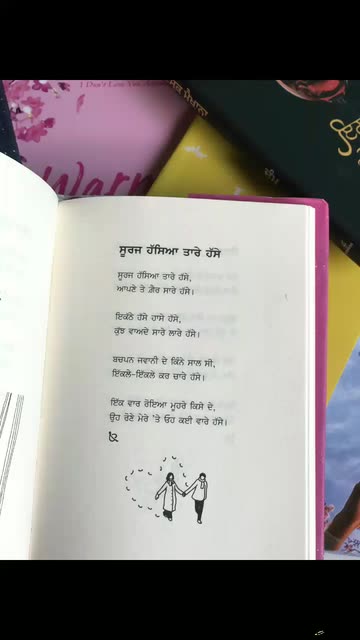 I Don't Love You Anymore
Warm
ਸੂਰਜ ਹੱਸਿਆ ਤਾਰੇ ਹੱਸੇ
ਸੂਰਜ ਹੱਸਿਆ ਤਾਰੇ ਹੱਸੇ,
ਆਪਣੇ ਤੇ ਗ਼ੈਰ ਸਾਰੇ ਹੱਸੇ।
ਇਕੱਠੇ ਹੱਸੇ ਹਾਸੇ ਹੱਸੇ,
ਕੁੱਝ ਵਾਅਦੇ ਸਾਰੇ ਲਾਰੇ ਹੱਸੇ।
ਬਚਪਨ ਜਵਾਨੀ ਦੇ ਕਿੰਨੇ ਸਾਲ ਸੀ,
ਇੱਕਲੇ-ਇੱਕਲੇ ਕਰ ਚਾਰੇ ਹੱਸੇ।
ਇੱਕ ਵਾਰ ਰੋਇਆ ਮੂਹਰੇ ਕਿਸੇ ਦੇ,
ਉਹ ਰੋਣੇ ਮੇਰੇ 'ਤੇ ਓਹ ਕਈ ਵਾਰੇ ਹੱਸੇ।